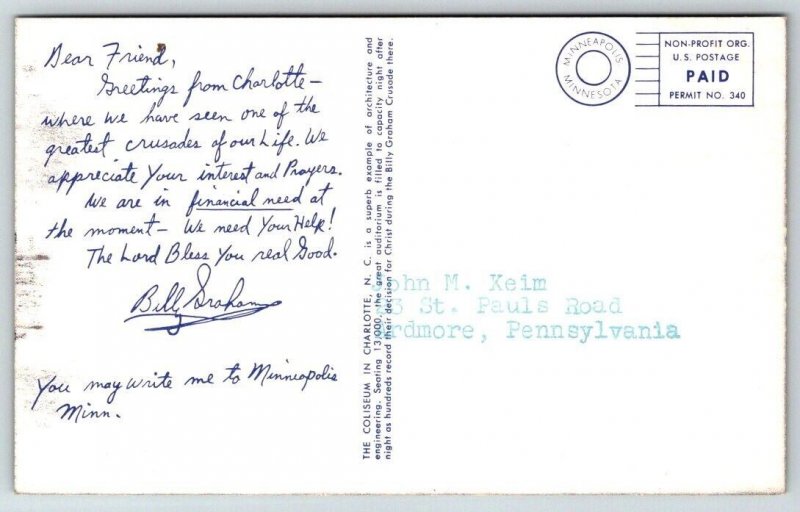 Dear Friend,
Greetings from Charlotte—
where we have seen one of the
greatest crusades of our Life. We
appreciate Your interest and Prayers.
We are in financial need at
the moment— We need Your Help!
The Lord Bless You real Good.
Billy Graham
You may write me to Minneapolis
Minn.
THE COLISEUM IN CHARLOTTE, N. C. is a superb example of architecture and
engineering. Seating 13,000, the great auditorium is filled to capacity night after
night as hundreds record their decision for Christ during the Billy Graham Crusade there.
MINNEAPOLIS
MINNESOTA
NON-PROFIT ORG.
U.S. POSTAGE
PAID
PERMIT NO. 340
John M. Keim
St. Pauls Road
Ardmore, Pennsylvania